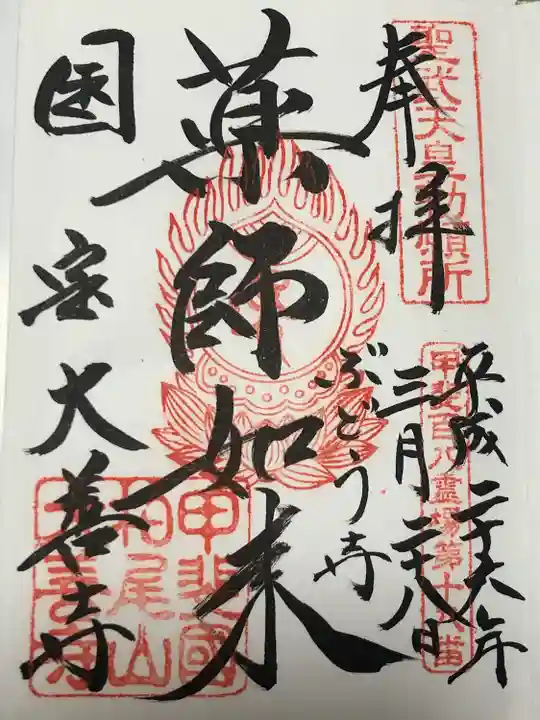 奉拝
聖武天皇勅願所
平成二十六年
三月二十八日
甲斐百八霊場第十六番
薬師如来
ぶどう寺
国宝大善寺
甲斐國
柏尾山
大善寺